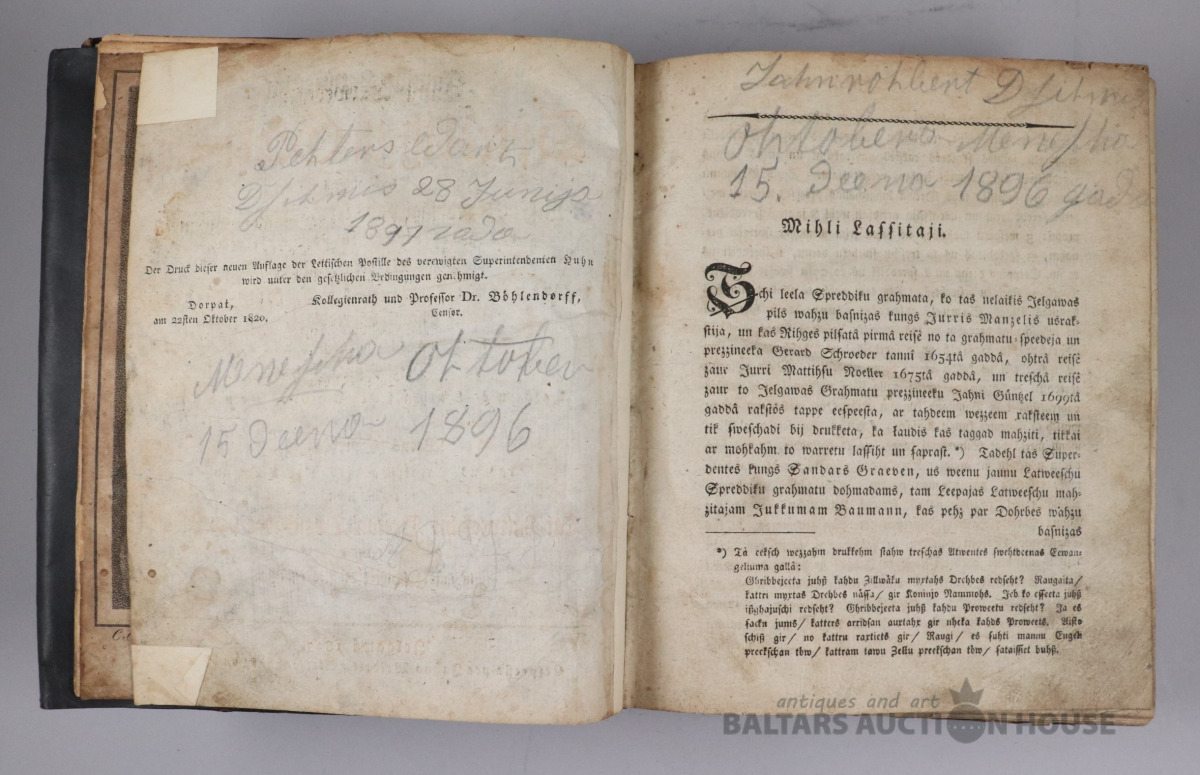 Pehters
Dsihmis 28 Junija
1897 gada
Der Druck dieser neuen Auflage der Lettischen Postille des verewigten Superintendenten Huhn
wird unter den gesetzlichen Bedingungen genehmigt.
Dorpat,
am 22sten Oktober 1820.
Kollegienrath und Professor Dr. Böhlendorff,
Censor.
Menesha Oktober
15 Deena 1896
Dsihmis
Oktobera Menesha
15. Deena 1896 gada
Mihli Laſſitaji.
Schi leela Spreddiku grahmata, ko tas nelaikis Jelgawas
pils wahzu baſnizas kungs Jurris Manzelis usrak⸗
ſtija, un kas Rihges pilſatâ pirmâ reiſê no ta grahmatu⸗ſpeedeja un
prezzineeka Gerard Schroeder tannî 1654tâ gaddâ, ohtrâ reiſê
zaur Jurri Mattihſu Noeller 1675tâ gaddâ, un treſchâ reiſê
zaur to Jelgawas Grahmatu prezzineeku Jahni Güntzel 1699tâ
gaddâ rakſtôs tappe eeſpeeſta, ar tahdeem wezzeem rakſteem un
tik ſweſchadi bij drukketa, ka laudis kas taggad mahziti, tikkai
ar mohkahm to warretu laſſiht un ſapraſt. *) Tadehl tas Super⸗
dentes kungs Sandars Graeven, us weenu jaunu Latweeſchu
Spreddiku grahmatu dohmadams, tam Leepajas Latweeſchu mah⸗
zitajam Jukkumam Baumann, kas pehz par Dohrbes wahzu
baſnizas
*) Tâ eekſch wezzahm drukkehm ſtahw treſchas Atwentes ſwehtdeenas Eewan⸗
geliuma gallâ:
Ghribbejeeta juhß kahdu Zillwäku myxtahs Drehbes redſeht? Raugaita/
kattri myxtas Drehbes näſſa/ gir Koninjo Nammohs. Jeb ko eſſeeta juhß
ißghajuſchi redſeht? Ghribbejeeta juhß kahdu Proweetu redſeht? Ja es
ſacku jums/ katters arridſan auxtahx gir nheka kahds Proweets. Aiſto
ſchiß gir/ no kattru raxtiets gir/ Raugi/ es ſuhti mannu Engeli
preekſchan tòw/ kattram tawu Zellu preekſchan tòw/ ſataiſſiet buhß.
antiques and art
BALTARS AUCTION HOUSE